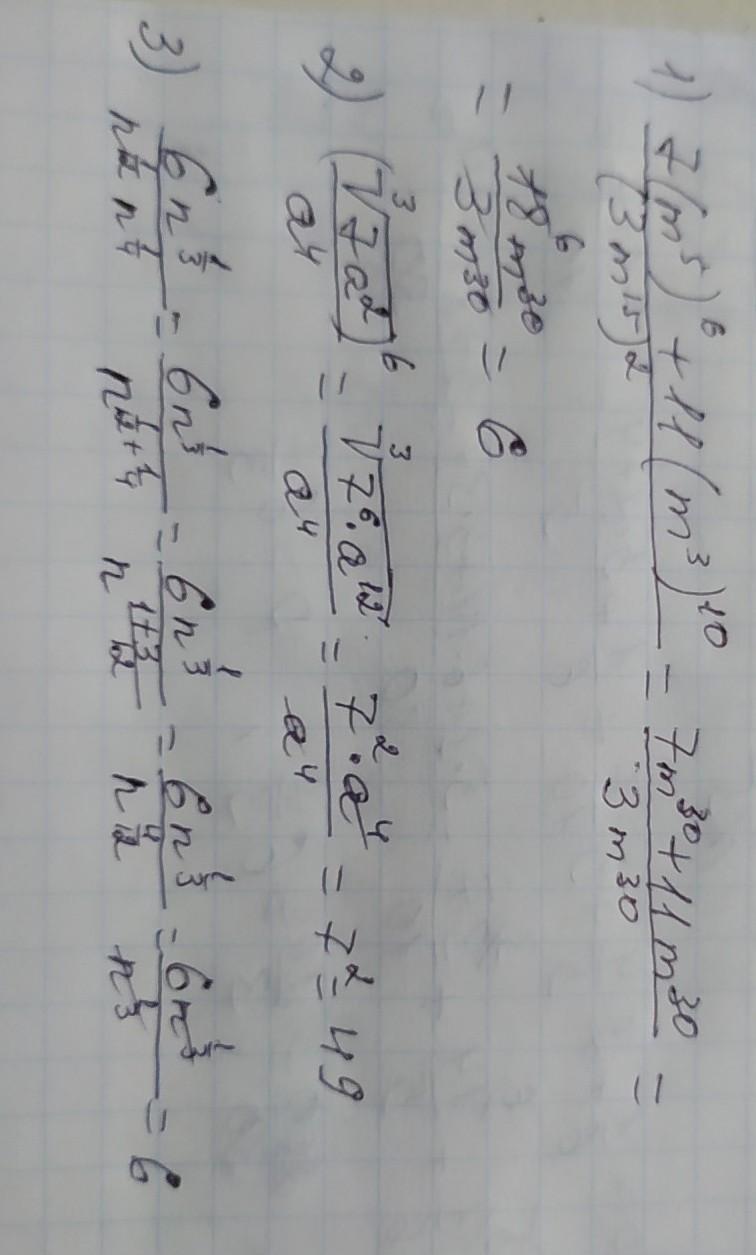 1) (7(m^5)^6 + 11(m^3)^10)/(3m^15)^2 = (7m^30 + 11m^30)/(3m^30) =
= (18^6 m^30)/(3m^30) = 6
2) (∛(7a^2))^6/a^4 = ∛(7^6 · a^12)/a^4 = (7^2 · a^4)/a^4 = 7^2 = 49
3) (6n^(1/3))/(n^(1/12) n^(1/4)) = (6n^(1/3))/(n^(1/12 + 1/4)) = (6n^(1/3))/(n^((1+3)/12)) = (6n^(1/3))/(n^(4/12)) = (6n^(1/3))/(n^(1/3)) = 6